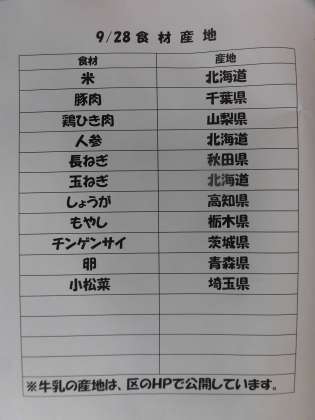 9/28 食材産地
食材 産地
米 北海道
豚肉 千葉県
鶏ひき肉 山梨県
人参 北海道
長ねぎ 秋田県
玉ねぎ 北海道
しょうが 高知県
もやし 栃木県
チンゲンサイ 茨城県
卵 青森県
小松菜 埼玉県
※牛乳の産地は、区のHPで公開しています。